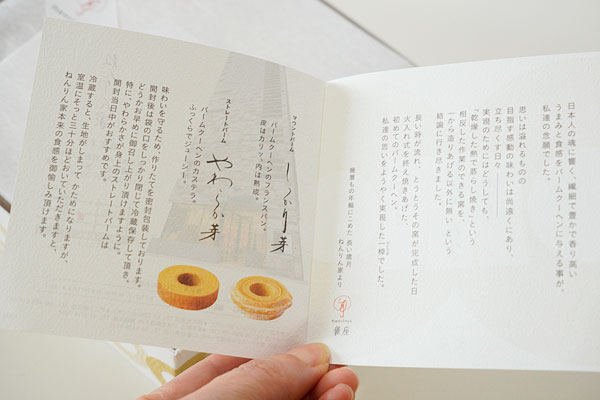 日本人の魂に響く、繊細で豊かで香り高い
うまみと食感をバームクーヘンに与える事が、
私達の念願でした。
思いは溢れるものの
目指す感動の味わいは尚遠くにあり、
立ち尽くす日々
実現のためにはどうしても、
「乾燥した熱で蒸らし焼き」という
相反した焼きができる窯を、
一から造りあげる以外に無いという
結論に行き尽きました。
長い時が流れ、とうとうその窯が完成した日
火入れ式を終え焼きあがった、
初めてのバームクーヘン。
私達の思いをようやく実現した一棹でした。
幾層もの年輪にこめた 長い歳月
ねんりん家より
銀座
マウントバーム
しっかり芽
バームクーヘンのフランスパン。
皮はカリッ、内は熟成。
ストレートバーム
やわらか芽
バームクーヘンのカステラ。
ふっくらでジューシー。
味わいを守るため、作りたてを密封包装しております。
開封後は袋の口をしっかり閉じて冷蔵保存して頂き、
どうかお早めに御召し上がり頂けますように。
特に、やわらかさが身上のストレートバームは
開封当日中がおすすめです。
冷蔵すると、生地がしまって かためになりますが、
室温にそっと三十分ほどおいていただきますと、
ねんりん家本来の食感を御愉しみ頂けます。